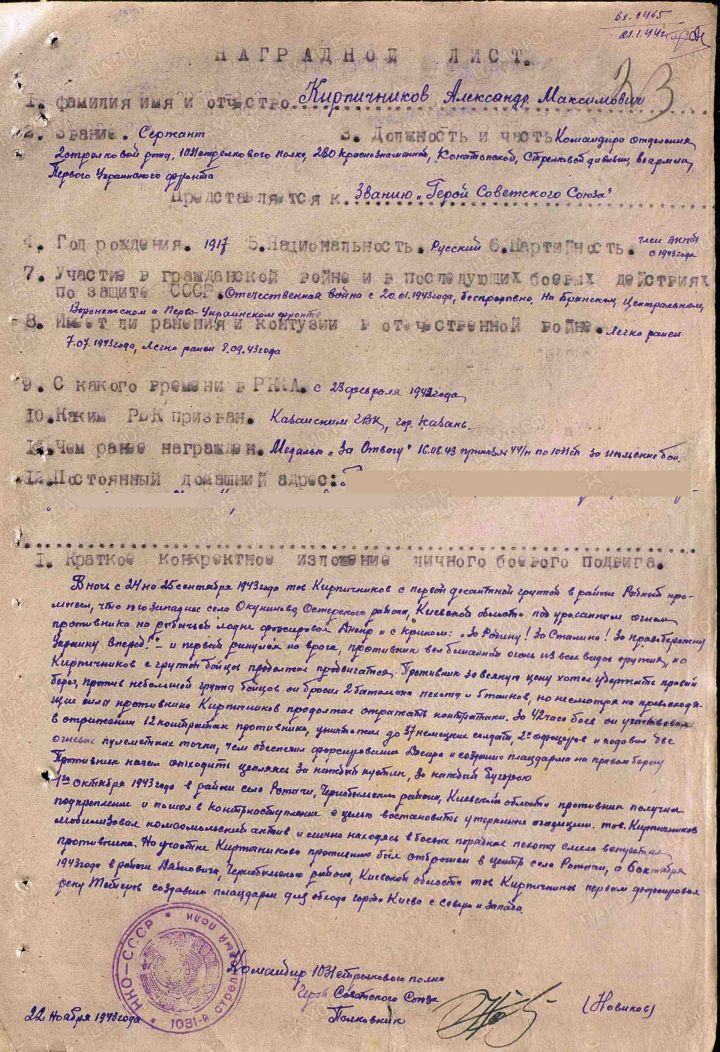 Вх. 1465
21.1.44г.
33
НАГРАДНОЙ ЛИСТ.
1. Фамилия имя и отчество Кирпичников Александр Максимович
2. Звание. Сержант 3. Должность и часть Командира отделения
2 стрелковой роты, 1031 стрелкового полка, 280 Краснознаменной, Конотопской, Стрелковой дивизии, армии,
Первого Украинского фронта
Представляется к Званию „Герой Советского Союза"
4. Год рождения. 1917 5. Национальность. Русский 6. Партийность. член ВКП(б) с 1943 года
7. Участие в гражданской войне и в последующих боевых действиях
по защите СССР. Отечественная война с 20.01.1943 года, беспрерывно, на Брянском, Центральном,
Воронежском и Перво-Украинском фронте
8. Имеет ли ранения и контузии в отечественной войне. Легко ранен
7.07.1943 года, легко ранен 8.09.43 года
9. С какого времени в РККА. с 23 февраля 1942 года
10. Каким РВК призван. Казанским ГВК, гор. Казань.
11. Чем ранее награжден. Медалью „За Отвагу" 16.08.43 приказ № 44/н по 1031 сп за июльские бои.
12. Постоянный домашний адрес:
1. Краткое конкретное изложение личного боевого подвига.
В ночь с 24 на 25 сентября 1943 года тов Кирпичников с первой десантной группой в районе Рыбный про-
мысел, что юго западнее село Окуниново Остерского района, Киевской области под ураганным огнем
противника на рыбачьей лодке форсировал Днепр и с криком: „За Родину! За Сталина! За правобережную
Украину Вперед!" - и первый ринулся на врага, противник вел бешанный огонь из всех видов оружия, но
Кирпичников с группой бойцов продолжал продвигаться. Противник за всякую цену хотел удержать правый
берег, против небольшой группы бойцов он бросил 2 батальона пехоты и 6 танков, но несмотря на превосходя-
щие силы противника Кирпичников продолжал отражать контратаки. За 42 часа боев он участвовал
в отражении 12 контратак противника, уничтожил до 37 немецких солдат, 2х офицеров и подавил две
огневых пулеметных точки, чем обеспечил форсирование Днепра и создание плацдарма на правом берегу
Противник начал отходить цепляясь за каждый кустик, за каждый бугорок
1го октября 1943 года в районе село Ротичи, Чернобыльского района, Киевской области противник получил
подкрепление и пошел в контрнаступление с целью востановить утерянные позиции. тов. Кирпичников
мобилизовал комсомольский актив и лично находясь в боевых порядках пехоты смело встретил
противника. На участке Кирпичникова противник был отброшен в центр села Ротичи, а 6 октября
1943 года в районе Чернобыльского района, Киевской области тов Кирпичников первым форсировал
реку Тетерев создавши плацдарм для обхода города Киева с Севера и Запада.
Командир 1031 стрелкового полка
Герой Советского Союза
Полковник (Новиков)
22 Ноября 1943 года
НКО-СССР
1031-й стрелковый полк